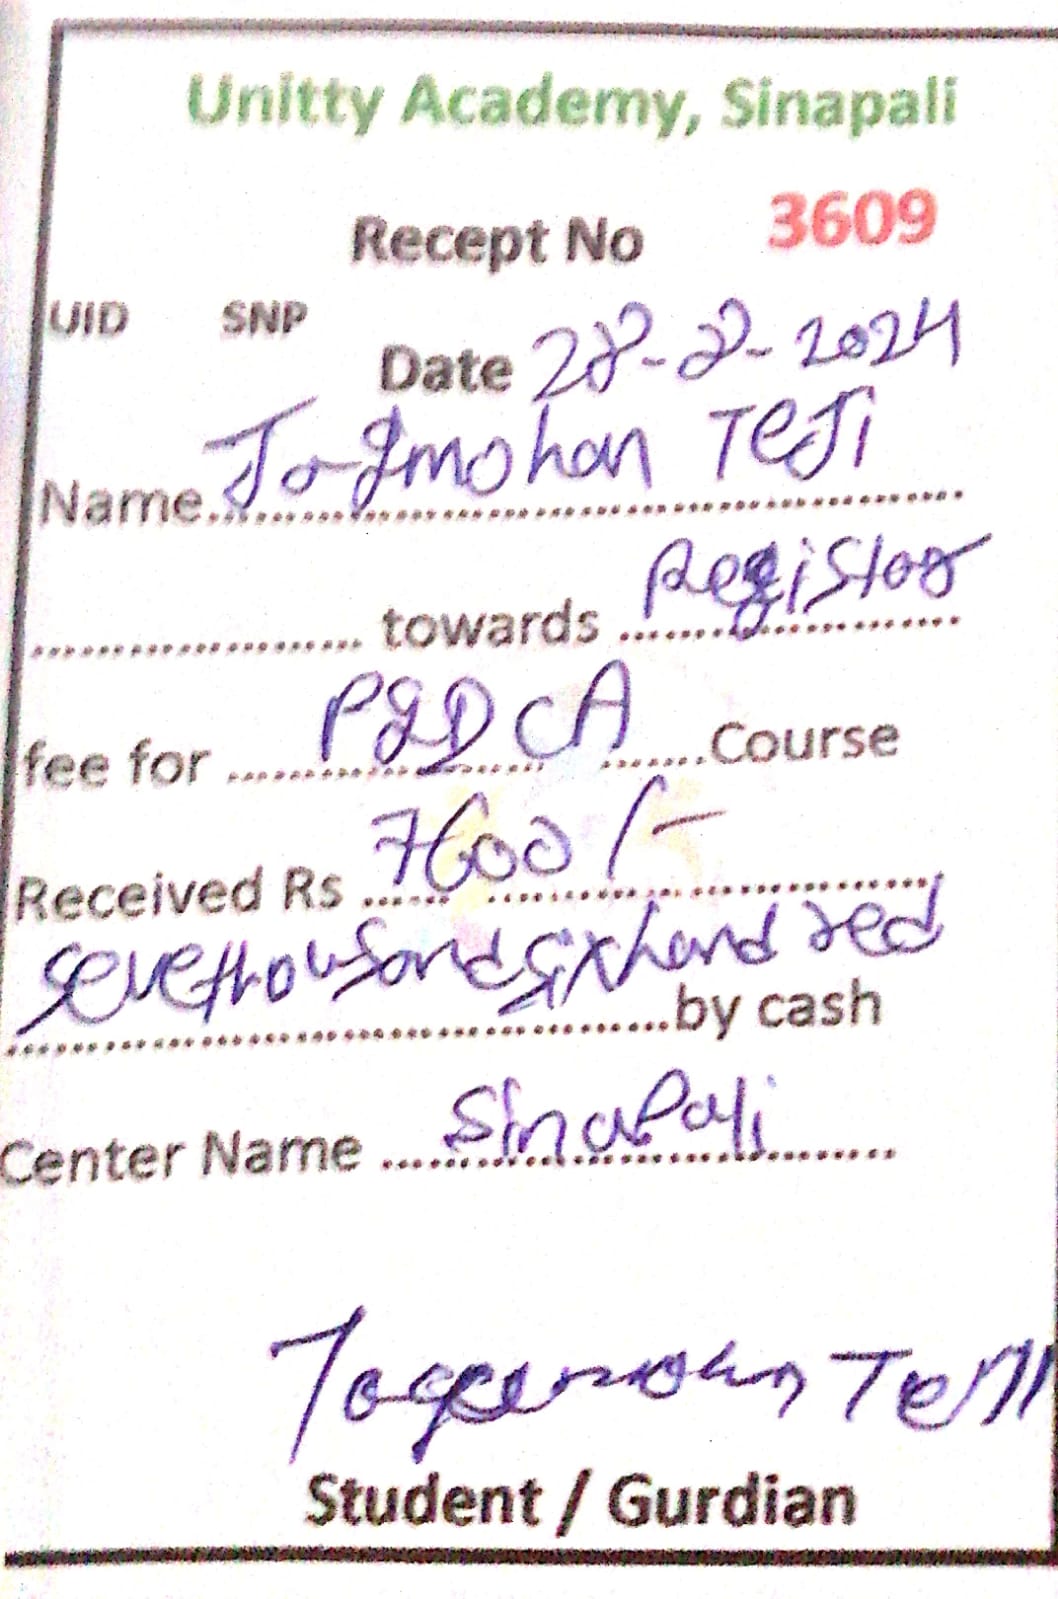 Unitty Academy, Sinapali
Recept No 3609
UID SNP
Date 28-8-2024
Name Jagmohan TeJi
towards Registor
fee for PGDCA Course
Received Rs 7600/-
Seventhousand Sixhand red
by cash
Center Name SinaPali
Student / Gurdian